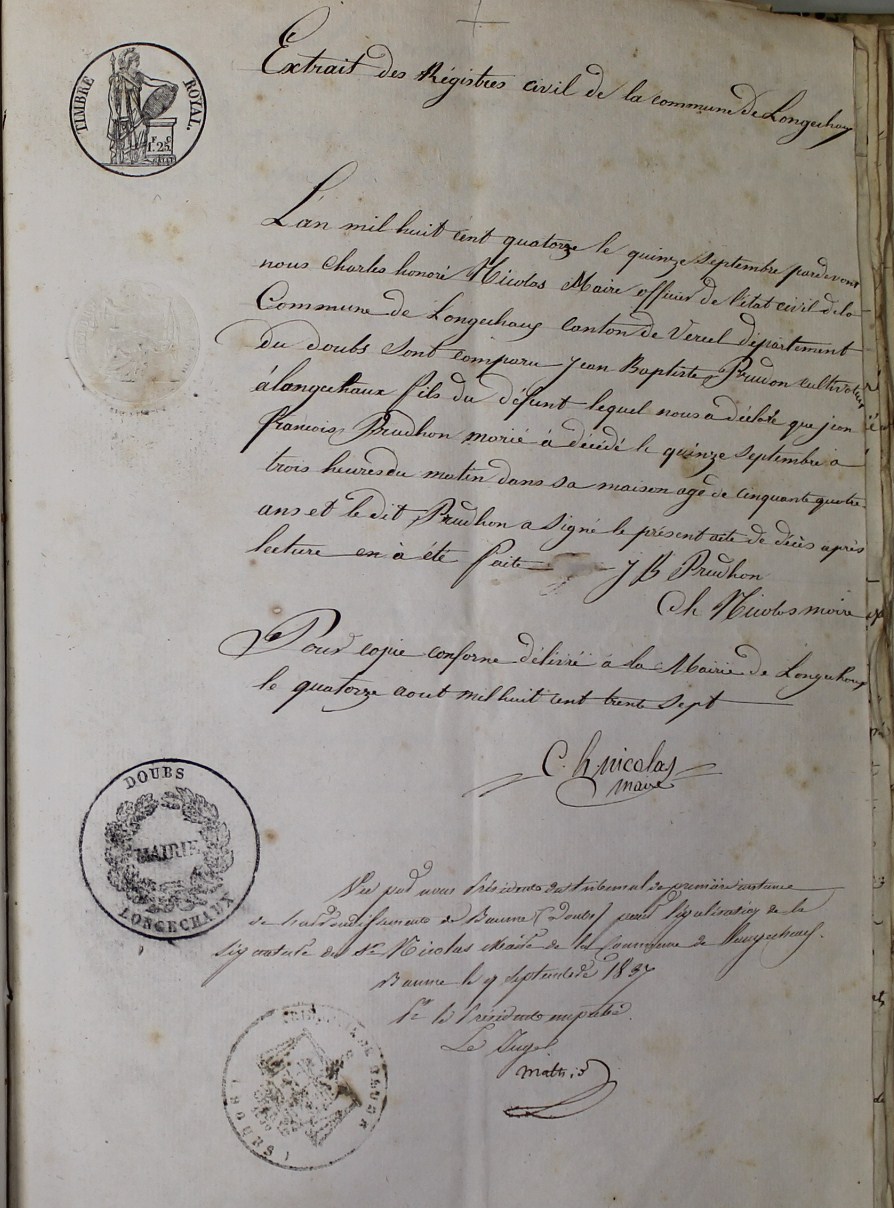 Extrait des Régistres civil de la commune de Longechaux
TIMBRE ROYAL.
1F. 25C
L'an mil huit cent quatorze le quinze Septembre pardevant
nous Charles honoré Nicolas Maire officier de l'état civil de la
Commune de Longechaux canton de Vercel département
du doubs Sont comparu Jean Baptiste Prudon cultivateur
à longechaux fils du défunt lequel nous a déclaré que jean
francois Prudhon marié à décédé le quinze Septembre a
trois heures du matin dans sa maison agé de cinquante quatre
ans et le dit Prudhon a Signé le présent acte de décès après
lecture en à été faite J B Prudhon
Ch Nicolas maire
Pour copie conforme délivré à la Mairie de Longechaux
le quatorze aout mil huit cent trente Sept
C. h. nicolas
maire
DOUBS
MAIRIE
LONGECHAUX
Vu par nous Président du tribunal de première instance
de l'arrondissement de Baume (Doubs) pour légalisation de la
signature du Sr Nicolas Maire de la Commune de Longechaux.
Baume le 9 Septembre 1837
Pr le Président empêché
Le Juge
TRIBUNAL DE BAUME
(DOUBS)